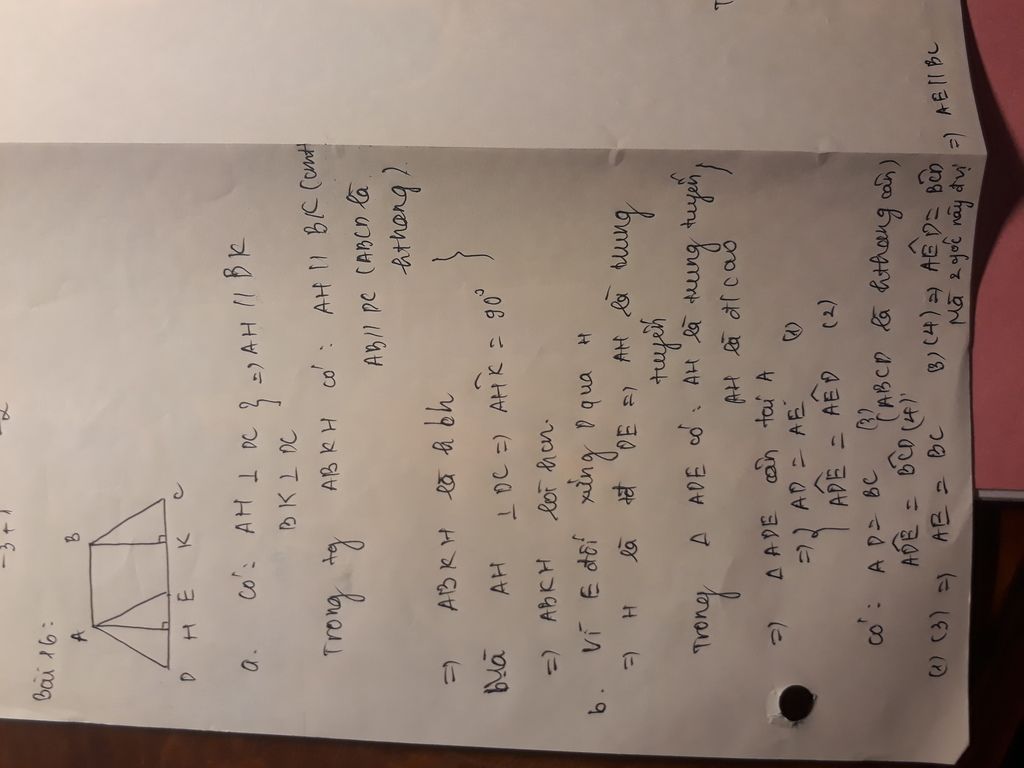 -3+1
Bài 16:
A B
D H E K C
a. có: AH ⊥ DC } => AH // BK
BK ⊥ DC
Trong tg ABKH có: AH // BK (cmt
AB // DC (ABCD là
hthang).
=> ABKH là hbh }
Mà AH ⊥ DC => AHK̂ = 90°
=> ABKH là hcn.
b. Vì E đối xứng D qua H
=> H là tđ DE => AH là trung
tuyến
Trong Δ ADE có: AH là trung tuyến }
AH là đ/cao
=> Δ ADE cân tại A
=> { AD = AE (1)
AD̂E = AÊD (2)
có: AD = BC (3) (ABCD là hthang cân)
AD̂E = BĈD (4)
(1) (3) => AE = BC
(2) (4) => AÊD = BĈD
Mà 2 góc này đvị => AE // BC